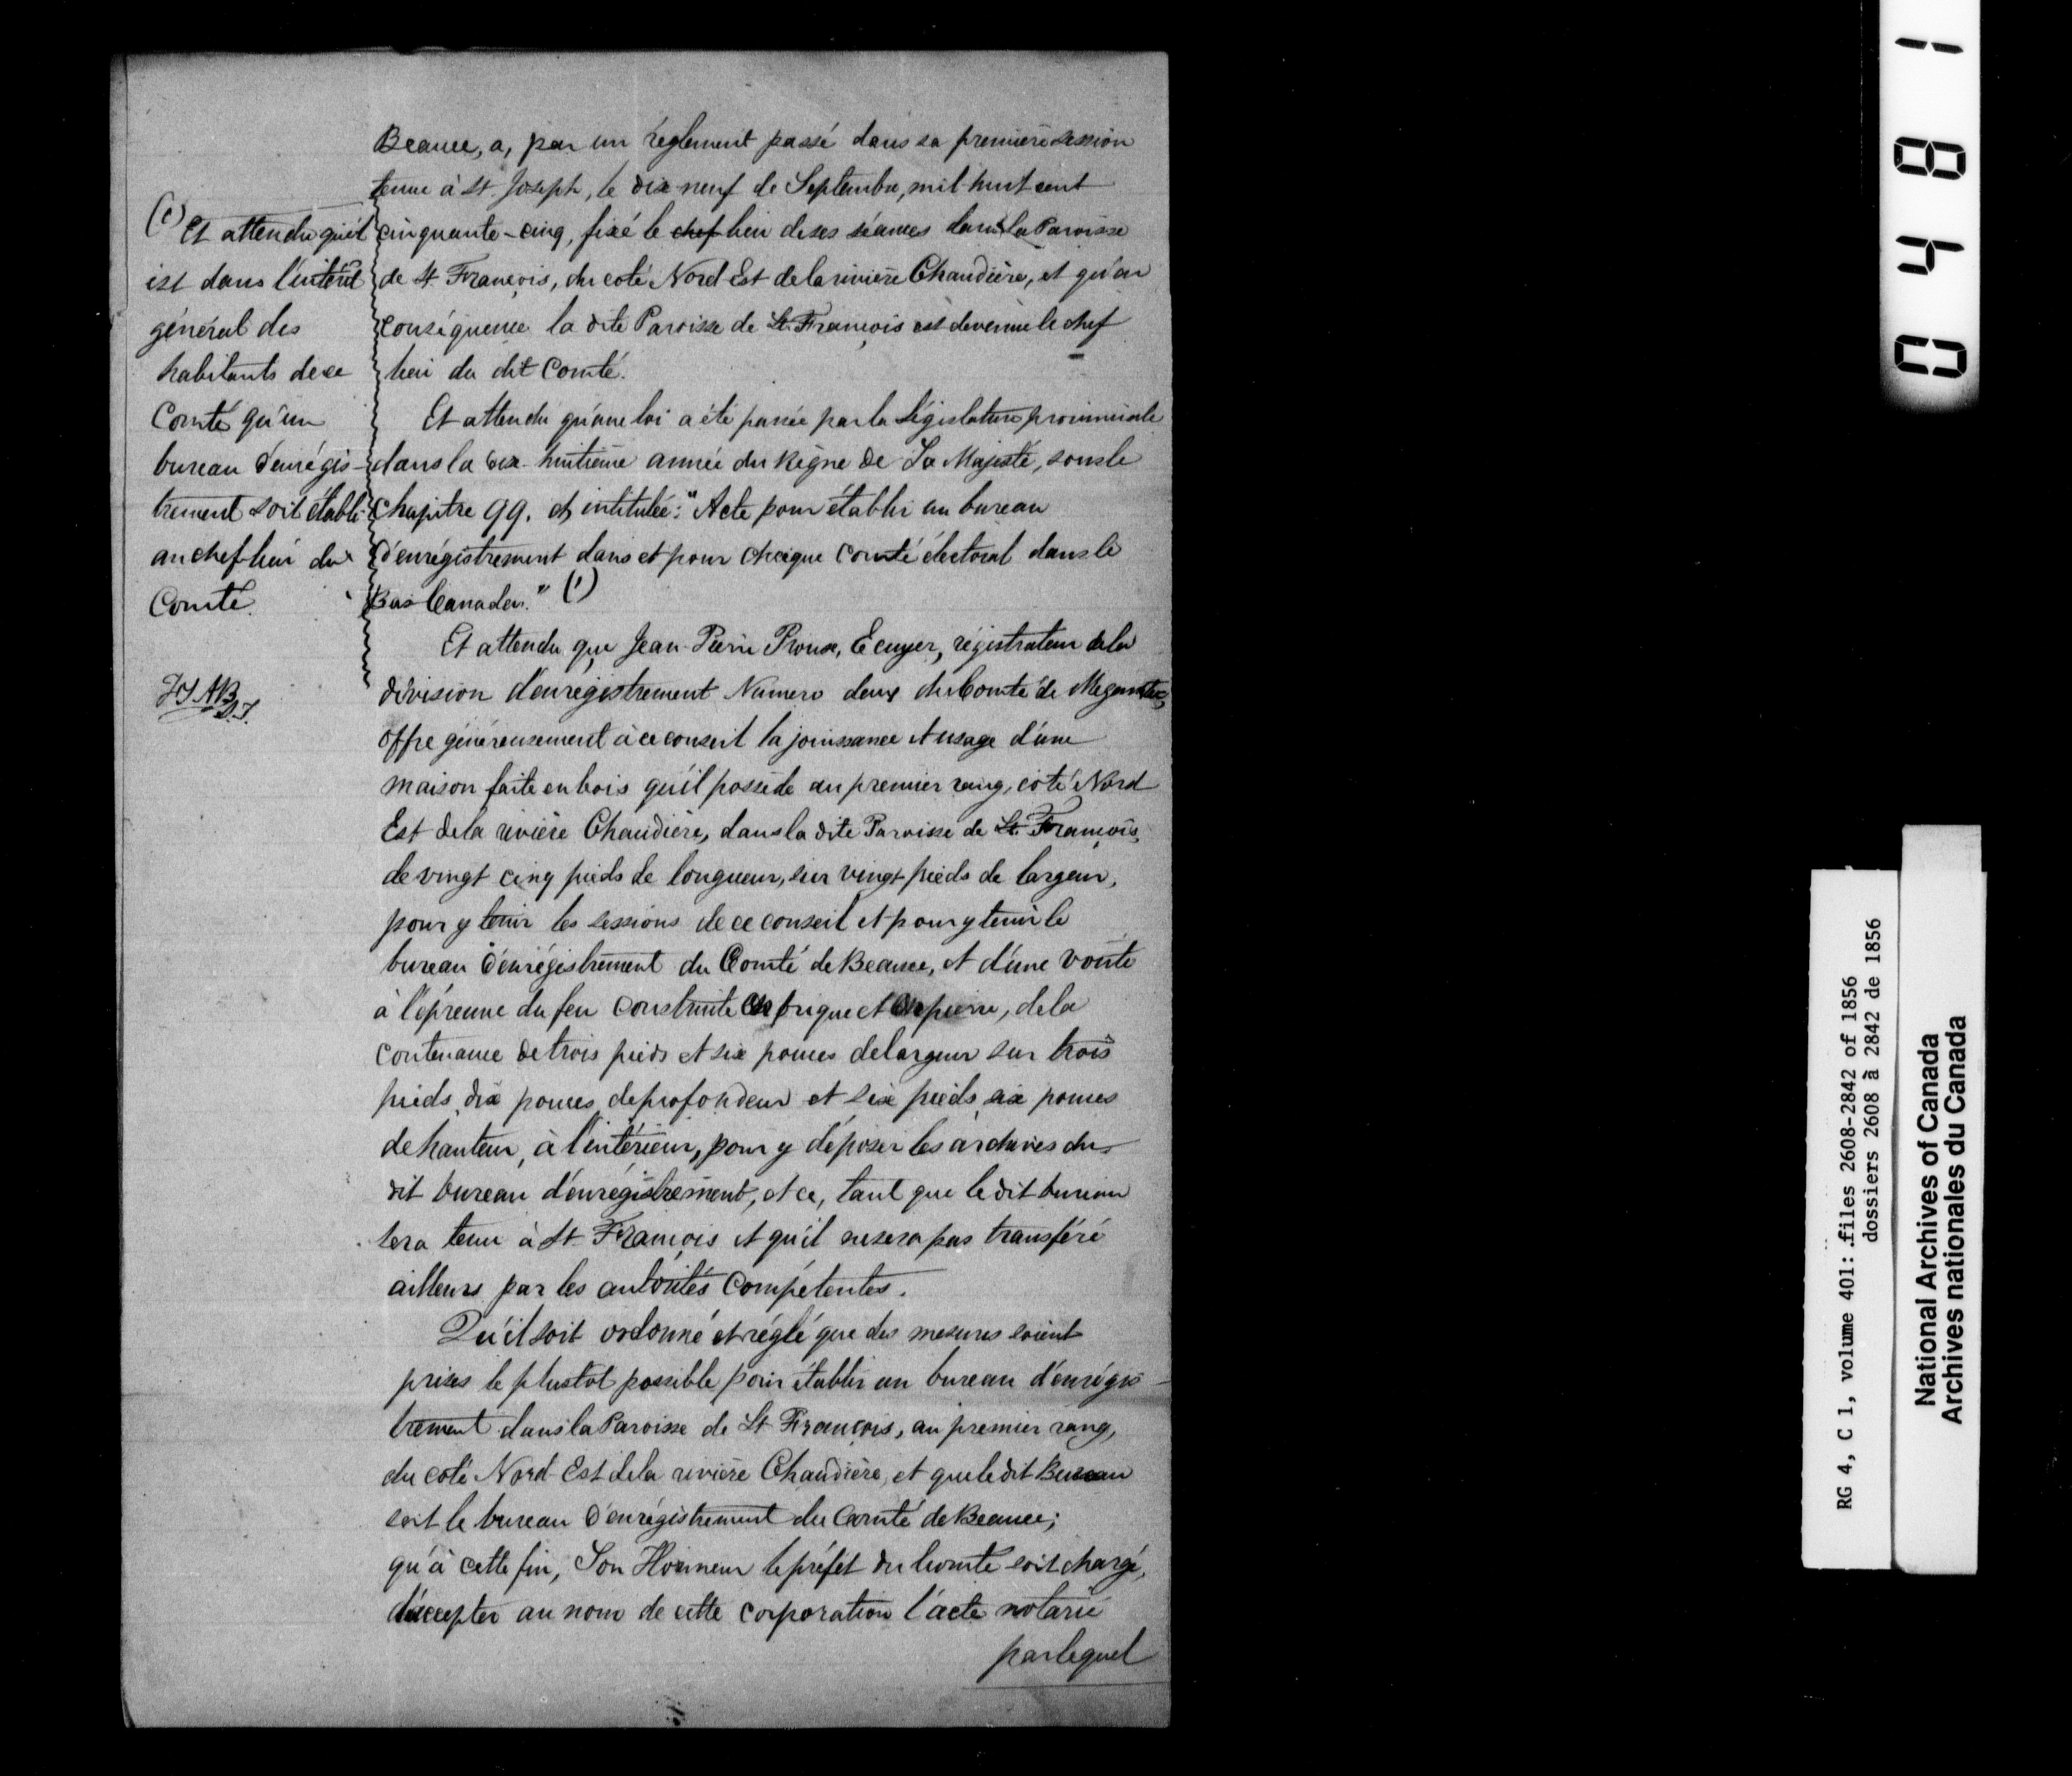 Beauce, a, par un règlement passé dans sa première session
tenue à St. Joseph, le dix neuf de Septembre, mil huit cent
cinquante-cinq, fixé le chef lieu de ses séances dans la Paroisse
de St François, du coté Nord Est de la rivière Chaudière, et qu'en
conséquence la dite Paroisse de St. François est devenue le chef
lieu du dit Comté.
Et attendu qu'une loi a été passée par la Législature provinciale
dans la dix-huitième année du Règne de Sa Majesté, sous le
Chapitre 99. et intitulée: "Acte pour établir un bureau
d'enrégistrement dans et pour chaque Comté électoral dans le
Bas Canada." (1)
Et attendu que Jean-Pierre Proulx, Ecuyer, régistrateur de la
division d'enrégistrement Numero deux du Comté de Megantic,
offre généreusement à ce conseil la jouissance et usage d'une
maison faite en bois qu'il possède au premier rang, coté Nord
Est de la rivière Chaudière, dans la dite Paroisse de St. François,
de vingt cinq pieds de longueur, sur vingt pieds de largeur,
pour y tenir les sessions de ce conseil et pour y tenir le
bureau d'enrégistrement du Comté de Beauce, et d'une voute
à l'épreuve du feu construite en brique et en pierre, de la
contenance de trois pieds et six pouces de largeur sur trois
pieds dix pouces de profondeur et six pieds six pouces
de hauteur, à l'intérieur, pour y déposer les archives du
dit bureau d'enrégistrement, et ce, tant que le dit bureau
sera tenu à St François et qu'il ne sera pas transféré
ailleurs par les autorités compétentes.
Qu'il soit ordonné et réglé que des mesures soient
prises le plustot possible pour établir un bureau d'enrégis-
trement dans la Paroisse de St François, au premier rang,
du coté Nord-Est de la rivière Chaudière, et que le dit Bureau
soit le bureau d'enrégistrement du Comté de Beauce;
qu'à cette fin, Son Honneur le préfet du Comté soit chargé,
d'accepter au nom de cette corporation l'acte notarié
par lequel
(1) Et attendu qu'il
est dans l'intérêt
général des
habitants de ce
Comté qu'un
bureau d'enrégis-
trement soit établi
au chef-lieu du
Comté.
0481
RG 4, C 1, volume 401: files 2608-2842 of 1856
dossiers 2608 à 2842 de 1856
National Archives of Canada
Archives nationales du Canada